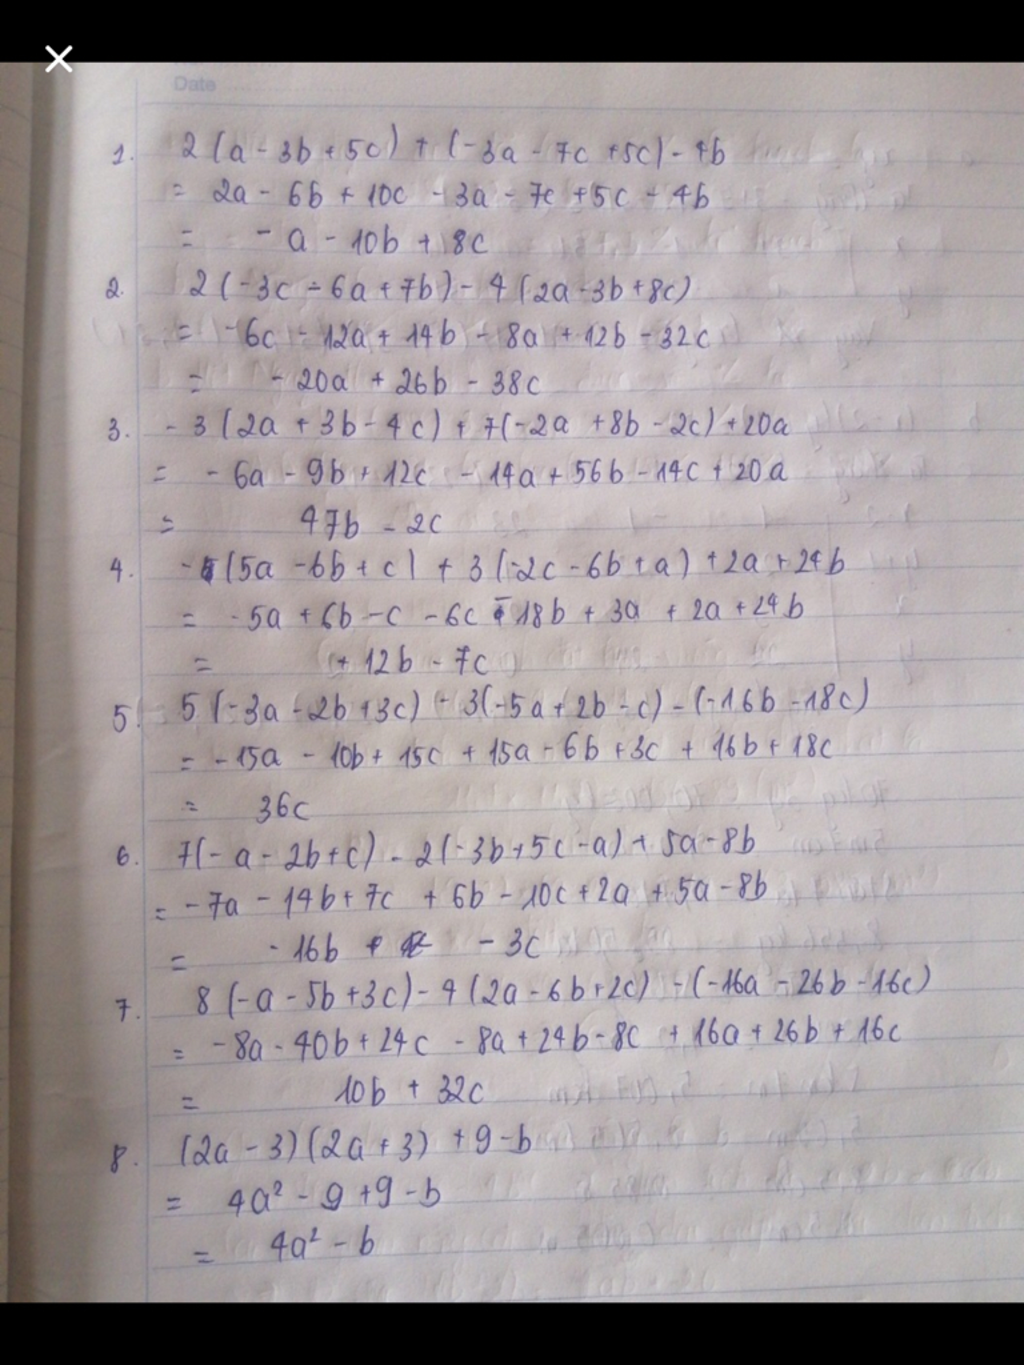 Date
1. 2(a - 3b + 5c) + (-3a - 7c + 5c) - 4b
= 2a - 6b + 10c - 3a - 7c + 5c - 4b
= - a - 10b + 8c
2. 2(-3c - 6a + 7b) - 4(2a - 3b + 8c)
= -6c - 12a + 14b - 8a + 12b - 32c
= - 20a + 26b - 38c
3. - 3(2a + 3b - 4c) + 7(-2a + 8b - 2c) + 20a
= - 6a - 9b + 12c - 14a + 56b - 14c + 20a
= 47b - 2c
4. - (5a - 6b + c) + 3(-2c - 6b + a) + 2a + 24b
= -5a + 6b - c - 6c - 18b + 3a + 2a + 24b
= + 12b - 7c
5. 5(-3a - 2b + 3c) - 3(-5a + 2b - c) - (-16b - 18c)
= -15a - 10b + 15c + 15a - 6b + 3c + 16b + 18c
= 36c
6. 7(-a - 2b + c) - 2(-3b + 5c - a) + 5a - 8b
= -7a - 14b + 7c + 6b - 10c + 2a + 5a - 8b
= - 16b - 3c
7. 8(-a - 5b + 3c) - 4(2a - 6b + 2c) - (-16a - 26b - 16c)
= -8a - 40b + 24c - 8a + 24b - 8c + 16a + 26b + 16c
= 10b + 32c
8. (2a - 3)(2a + 3) + 9 - b
= 4a² - 9 + 9 - b
= 4a² - b